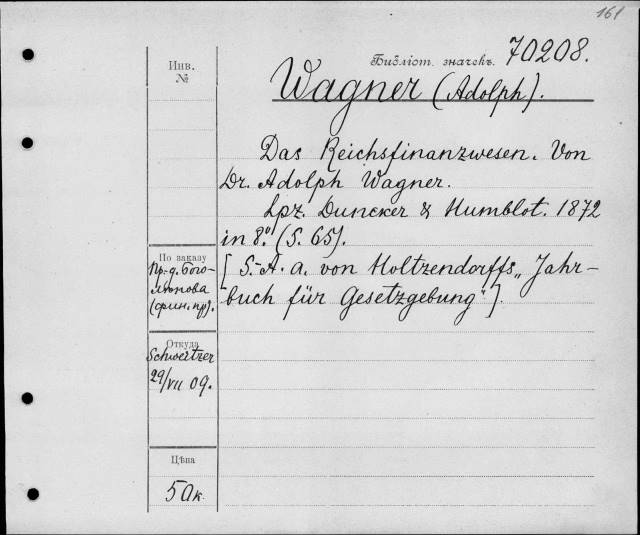 161
Библіот. значекъ. 70208.
Инв.
№
Wagner (Adolph).
Das Reichsfinanzwesen. Von
Dr. Adolph Wagner.
Lpz. Duncker & Humblot. 1872
in 8.º (S. 65).
[S.-A. a. von Holtzendorffs „Jahr-
buch für Gesetzgebung"].
По заказу
Пр-д. Бого-
лѣпова
(фин. пр).
Откуда
Schweitzer
29/VII 09.
Цѣна
50 к.